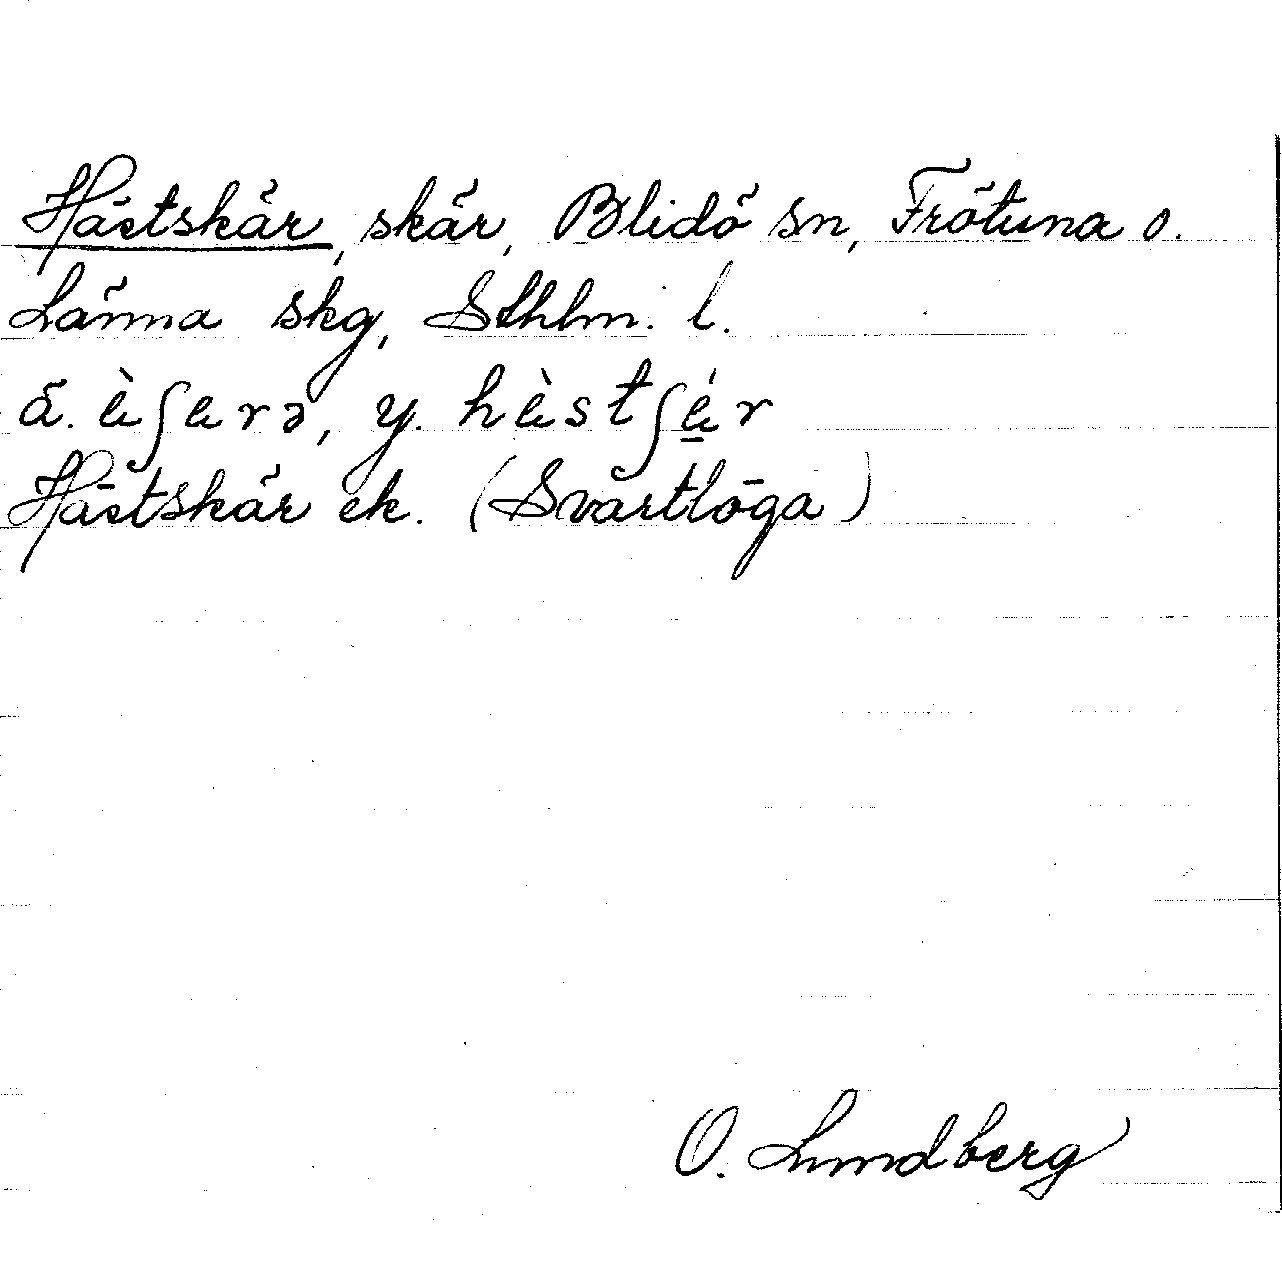 Hästskär, skär, Blidö sn, Frötuna o.
Länna skg, Sthlm. l.
ä. ὲʃɛrə, y. hὲstʃɛ́r
Hästskär ek. (Svartlöga)
O. Lundberg